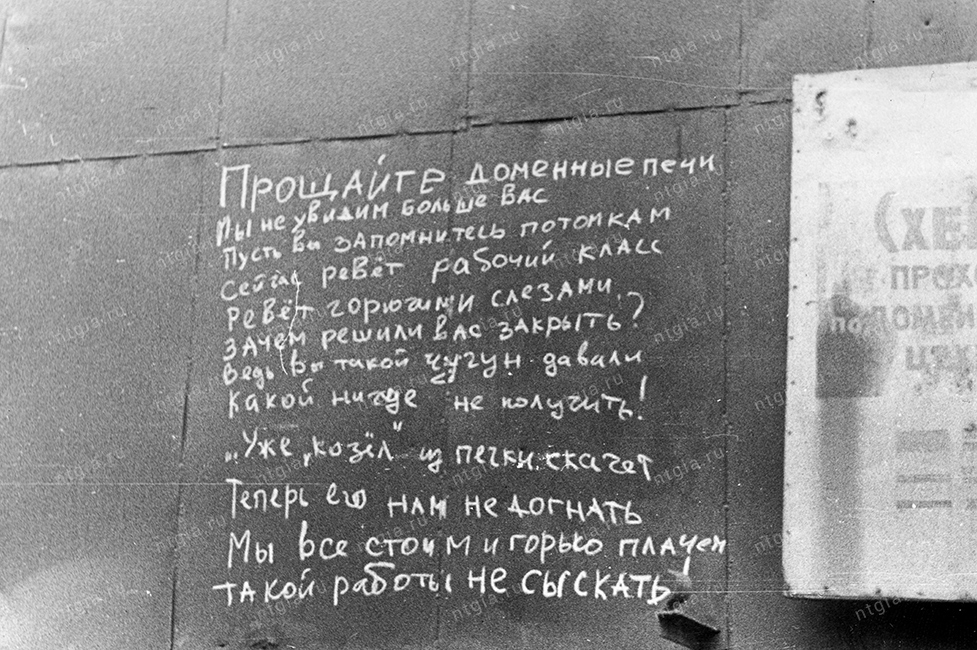 Прощайте доменные печи
Мы не увидим больше вас
Пусть вы запомнитесь потомкам
Сейчас ревёт рабочий класс
Ревёт горючими слезами,
Зачем решили вас закрыть?
Ведь вы такой чугун давали
Какой нигде не получить!
„Уже „козёл" из печки скачет
Теперь его нам не догнать
Мы все стоим и горько плачем
такой работы не сыскать!
(ХЕ
ПРОХ
ПО ДОМЕН
ЦЕХ
ntgia.ru